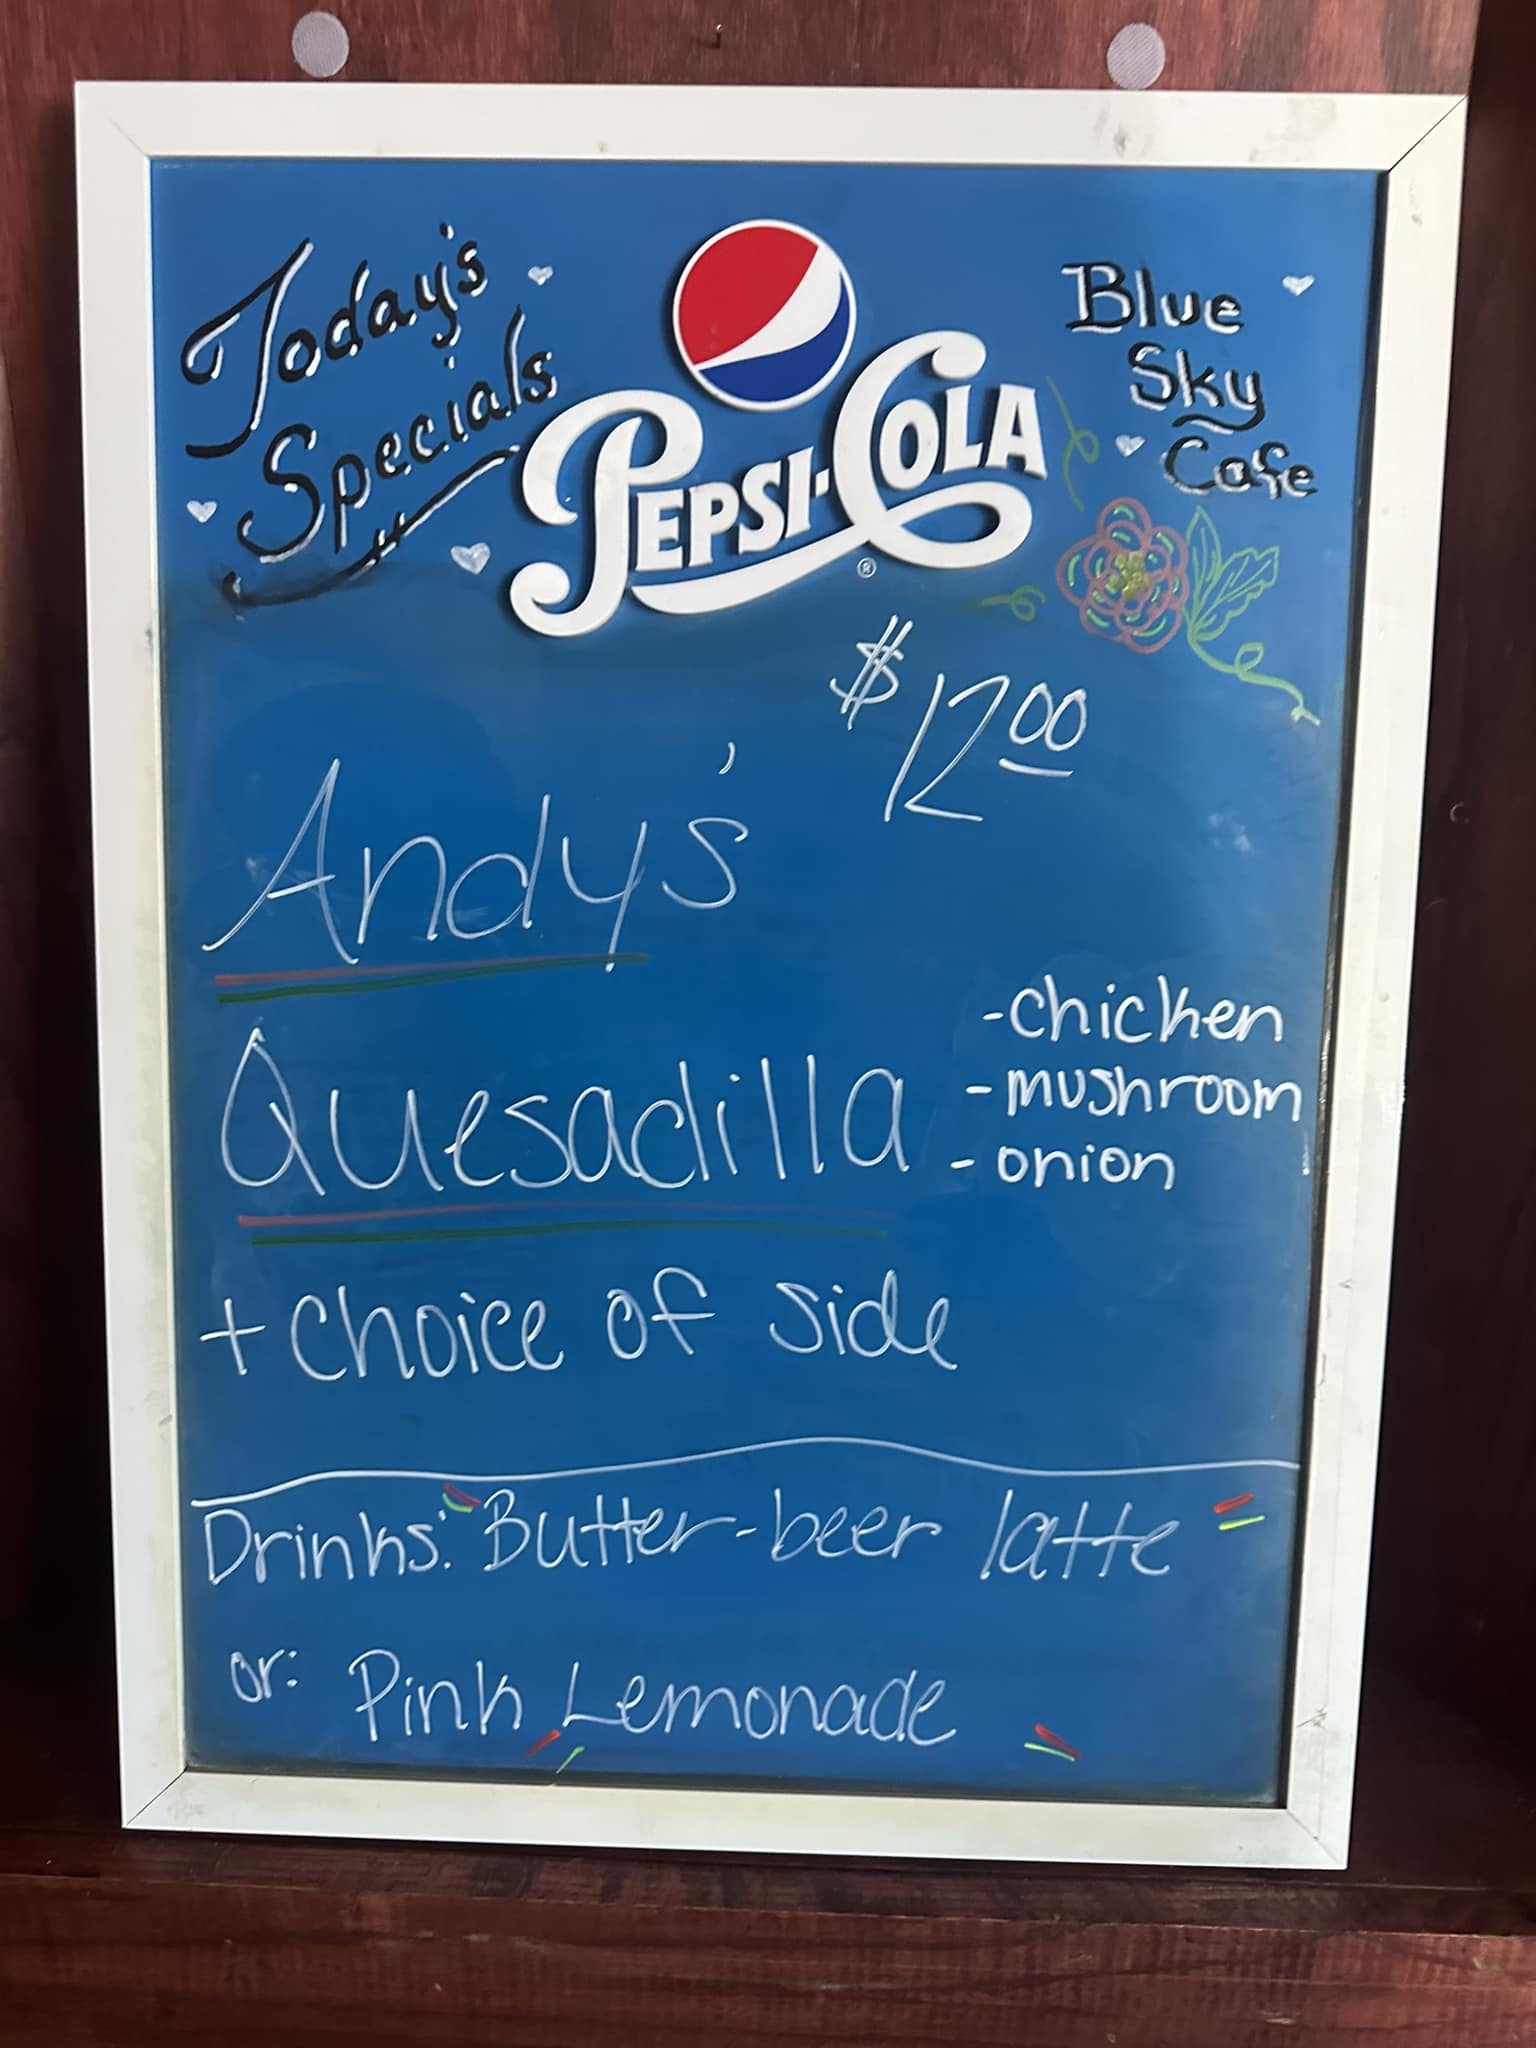 Today's
Specials
PEPSI-COLA
®
Blue
Sky
Cafe
$12.00
Andy's
Quesadilla
-chicken
-mushroom
-onion
+ choice of side
Drinks: Butter-beer latte
or: Pink Lemonade